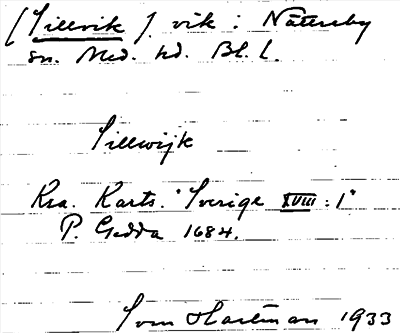 [Sillvik]. vik: Nättraby
sn. Med. hd. Bl. l.
Sillwijk
Kra. Karts. "Sverige XVIII:1"
P. Gedda 1684.
Sven Hartman 1933